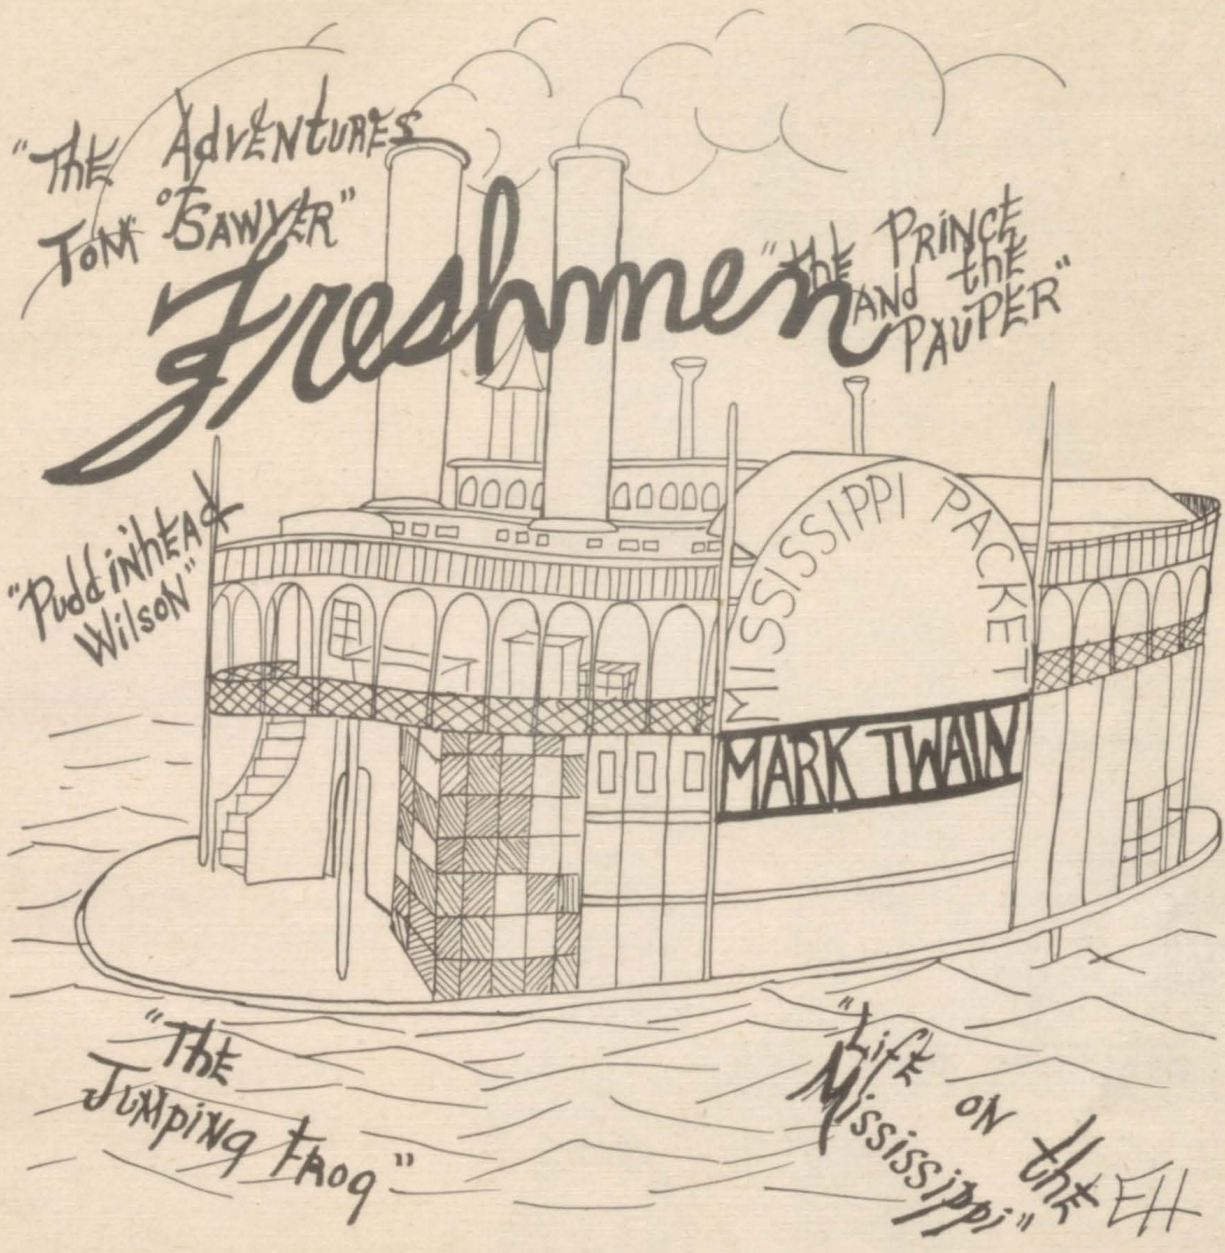 "The Adventures
of
Tom Sawyer"
Freshmen
"the Prince
and the
Pauper"
"Puddinhead
Wilson"
MISSISSIPPI PACKET
MARK TWAIN
"The
Jumping Frog"
"Life on the
Mississippi"
EH